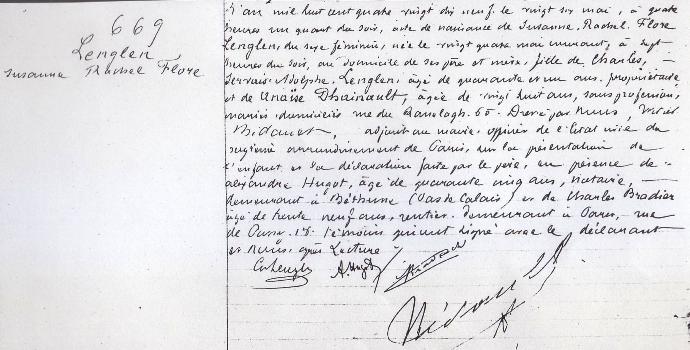 669
Lenglen
Suzanne Rachel Flore
L'an mil huit cent quatre vingt dix neuf le vingt six mai, à quatre
heures un quart du soir, acte de naissance de Suzanne, Rachel, Flore
Lenglen, du sexe féminin, née le vingt quatre mai courant, à sept
heures du soir, au domicile de ses père et mère, fille de Charles,
Gervais Adolphe Lenglen, âgé de quarante et un ans, propriétaire
et de Anaïse Dhainault, âgée de vingt huit ans, sans profession,
mariés, domiciliés rue du Ranelagh 60. Dressé par nous,
Bidault, adjoint au maire, officier de l'état civil du
seizième arrondissement de Paris, sur la présentation de
l'enfant et la déclaration faite par le père, en présence de
Alexandre Hugot, âgé de quarante cinq ans, notaire,
demeurant à Béthune (Pas de Calais) et de Charles Bradier
âgé de trente neuf ans, rentier, demeurant à Paris, rue
de 15. témoins qui ont signé avec le déclarant
et nous, après lecture
A. Hugot